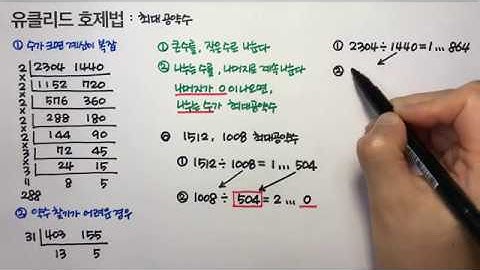 유클리드 호제법 : 최대공약수
① 수가 크면 계산이 복잡
2 2304 1440
×
2 1152 720
×
2 576 360
×
2 288 180
×
2 144 90
×
3 72 45
×
3 24 15
" 8 5
288
② 약수 찾기가 어려운 경우
31 403 155
13 5
① 큰수를, 작은수로 나눈다
② 나눈수를, 나머지로 계속 나눈다
나머지가 0 이 나오면,
나누는 수가 최대공약수
⊙ 1512, 1008 최대공약수
① 1512 ÷ 1008 = 1 ... 504
② 1008 ÷ 504 = 2 ... 0
① 2304 ÷ 1440 = 1 ... 864
②